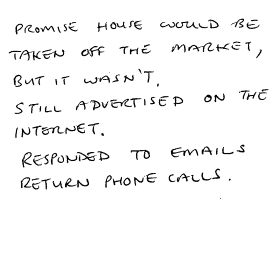 PROMISE HOUSE WOULD BE
TAKEN OFF THE MARKET,
BUT IT WASN'T.
STILL ADVERTISED ON THE
INTERNET.
RESPONDED TO EMAILS
RETURN PHONE CALLS.